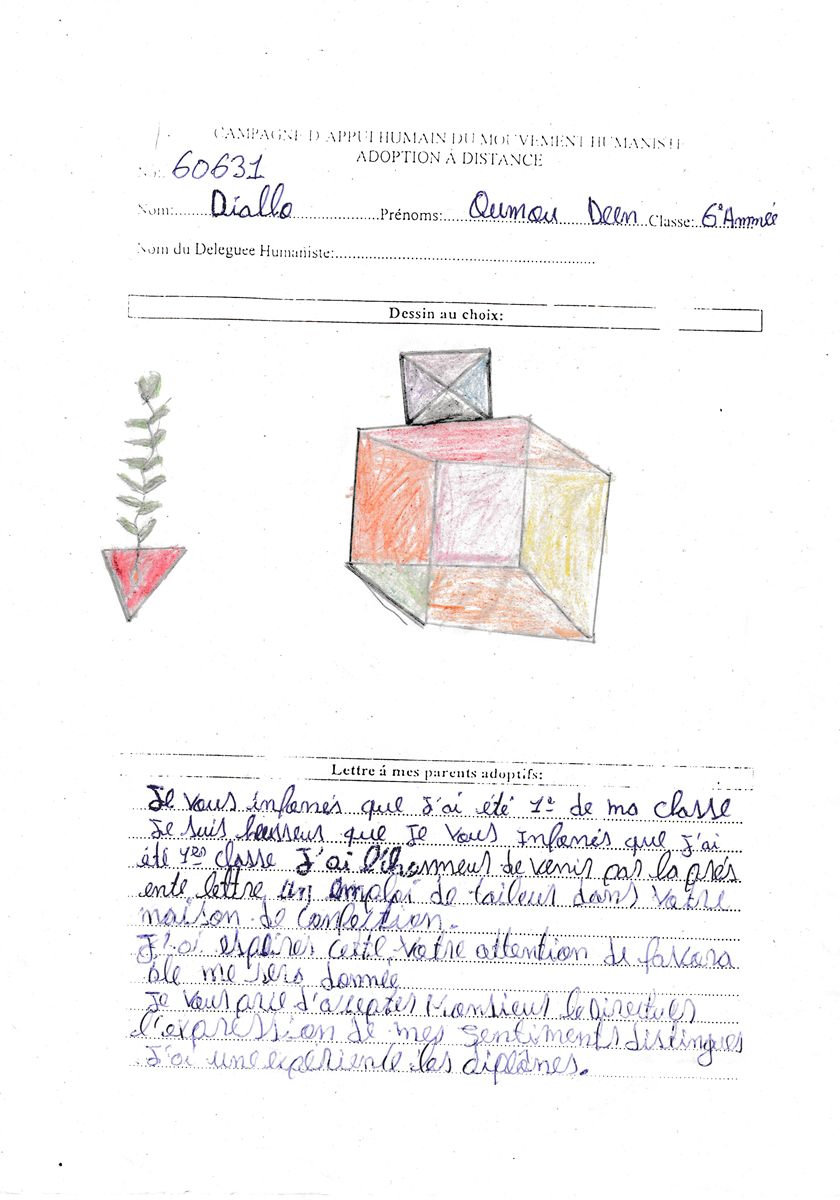 CAMPAGNE D'APPUI HUMAIN DU MOUVEMENT HUMANISTE
ADOPTION À DISTANCE
No: 60631
Nom: Diallo Prénoms: Oumou Deen Classe: 6e Année
Nom du Deleguee Humaniste:
Dessin au choix:
Lettre á mes parents adoptifs:
Je vous infomés que J'ai été 1e de ma classe
Je suis heusseus que Je vous Infomés que J'ai
été 1er classe J'ai l'honmeur de venir par la prés
ente lettre un emploi de taileur dans votre
maison de confection.
J'ai espérer votre attention de favora
ble me sera donnée
Je vous prie d'accepter Monsieur le Directuer
l'expression de mes sentiments distingues
J'ai une experience les diplômes.